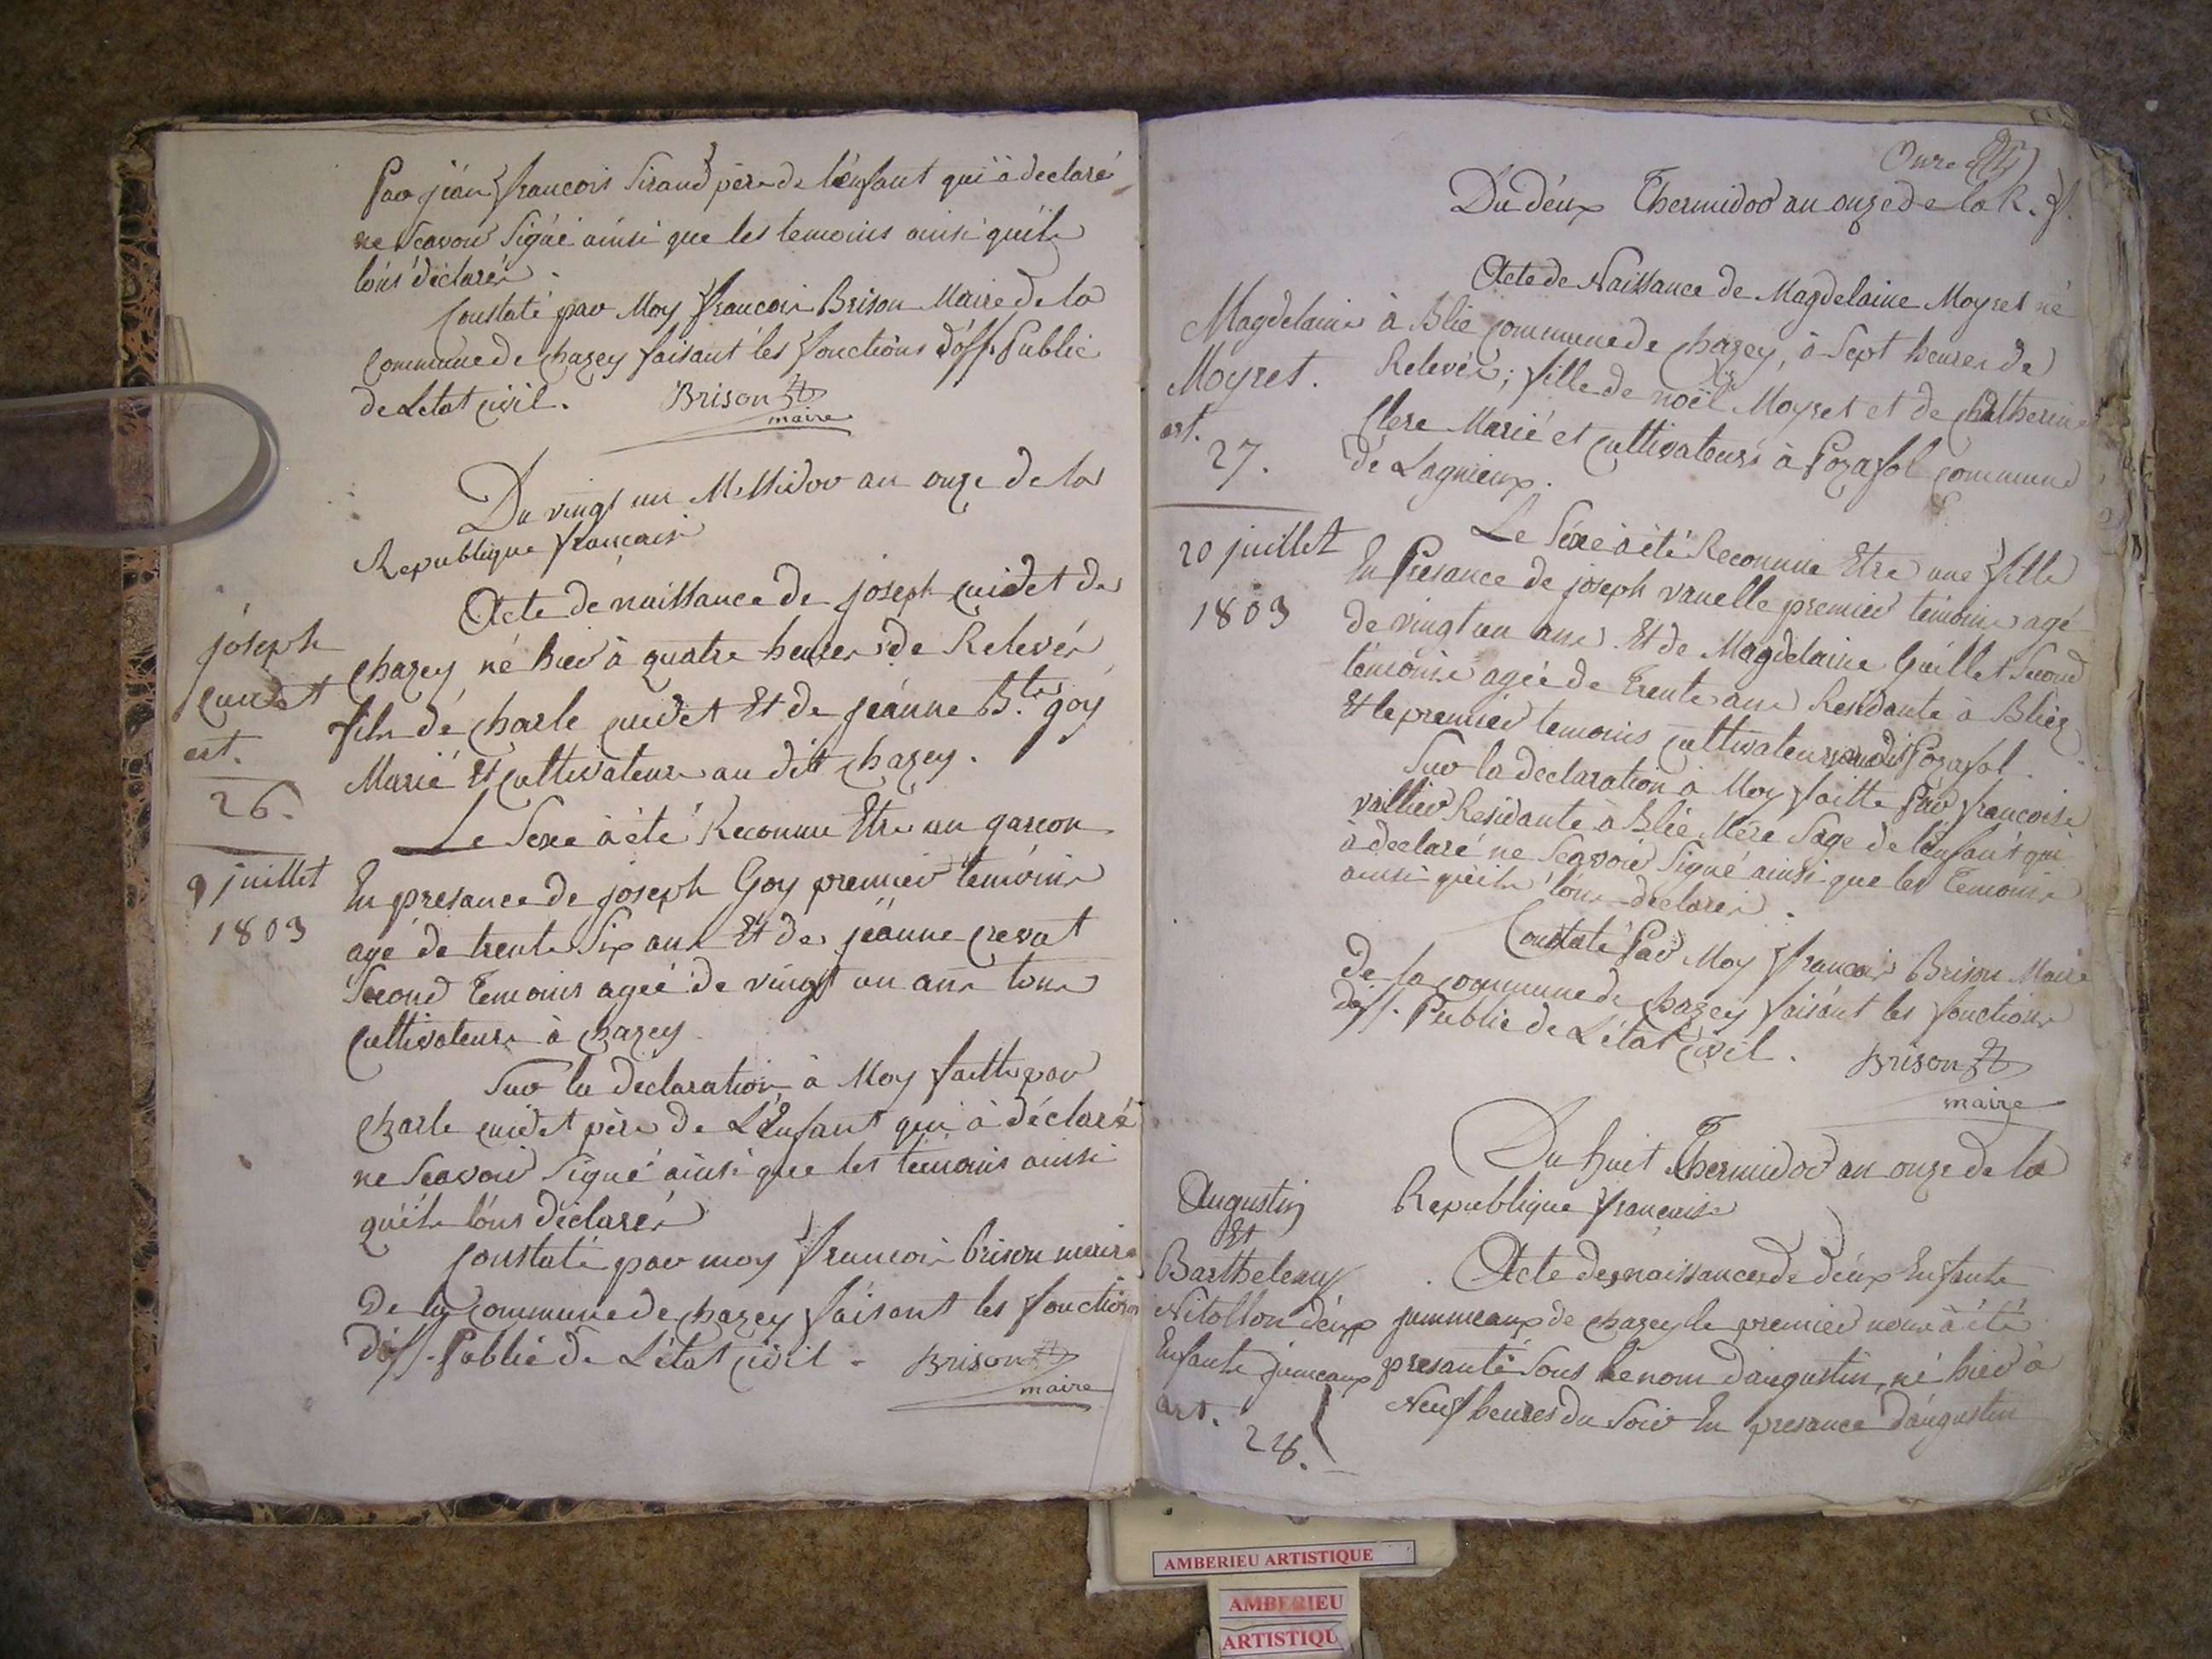 Par jéan francois Siraud père de l'enfant qui à declaré
ne Scavoir Signé ainsi que les temoins ainsi quils
lóns déclarér.
Constaté par Moy francois Brison Maire de la
Commune de chazey faisant les fonctions d'off. Public
de Letat civil. Brison
maire
Du vingt un Messidor an onze de la
Republique francaise
Acte dé naissance de joseph cuidet de
joseph
cuidet
art.
26.
9 juillet
1803
chazey né hier à quatre heures de Relevér
fils dé charle cuidet Et de jéanne B.te goy
Marié Et cultivateurs au dit chazey.
Le Sexe à été Reconnu Etre un garcon
En presance de joseph Goy premier temóins
agé de trente Six ans Et de jéanne crevat
Second temoins agéé de vingt un ans tous
cultivateurs à chazey
Sur la declaration à Moy faitte par
charle cuidet père de L'Enfant qui à déclaré
ne Scavoir Signé ainsi que les témoins ainsi
quéils lóns déclarér
constaté par moy francois brison maire
de la Commune de chazey faisant les fonctions
d'off. Public de L'état civil. Brison
maire
Onze
Du déux Thermidor an onze de la R. f.
Acte de Naissance de Magdelaine Moyret né
Magdelaine
Moyret.
art.
27.
20 juillet
1803
à Blie commune de chazey, à Sept heures de
Relevéé; fille de noël Moyret et de Catherine
Clere Marié et cultivateurs à Pozafol commune
dé Lagnieux.
Le Séxe à été Reconnue Etre une fille
En Presance de joseph vanelle premier témoins agé
de vingt un ans Et de Magdelaine Guillet Second
témoins agéé de trente ans Residante à Bliez
Et le premier temoins cultivateur audit Pozafol.
Sur la declaration à Moy faitte Par francoise
vallier Residante à Blie Mére Sage de l'enfant qui
à declaré ne Scavoir Signé ainsi que les temoins
ainsi quéils lóns declarér.
Constaté Par Moy francois Brison Maire
de la commune de chazey faisant les fonctions
d'off. Public de L'état civil. Brison
maire
Du huit Thermidor an onze de la
Republique francaise
Augustin
Et
Barthelemy
Nitollon déux
Enfants jumeaux
art.
28.
Acte de naissance de déux Enfants
jummeaux de chazey le premier nous à été
presanté Sous le nom d'augustin, né hier à
Neuf heures du Soir En presance d'augustin
AMBERIEU ARTISTIQUE
AMBERIEU
ARTISTIQU